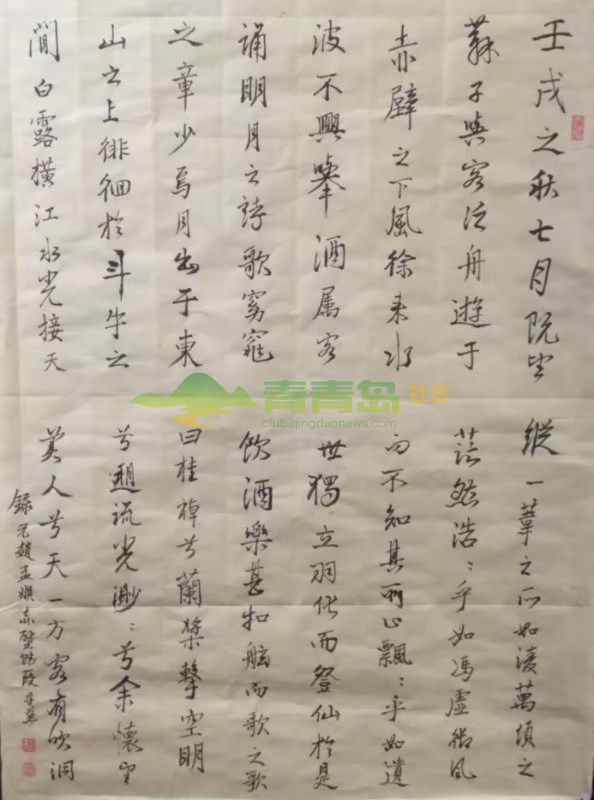 壬戌之秋七月既望
蘇子與客泛舟遊于
赤壁之下風徐来水
波不興舉酒属客
誦明月之詩歌窈窕
之章少焉月出于東
山之上徘徊於斗牛之
間白露橫江水光接天
縱一葦之所如凌萬頃之
茫然浩〻乎如馮虛御風
而不知其所止飄〻乎如遺
世獨立羽化而登仙於是
飲酒樂甚扣舷而歌之歌
曰桂棹兮蘭槳擊空明
兮遡流光渺〻兮余懷望
美人兮天一方客有吹洞
錄元趙孟頫赤壁賦段
青青岛社区
club.qingdaonews.com